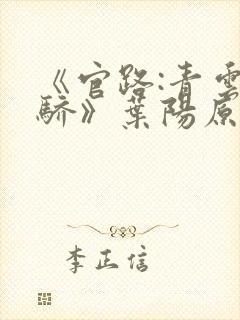 《官路:青雲
驕》葉陽原
李正信